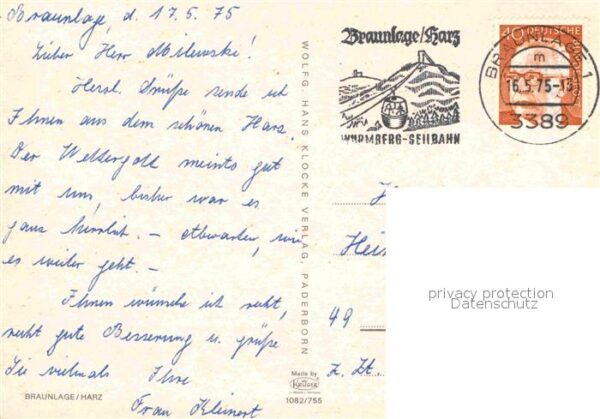 Braunlage, d. 17.5.75
Lieber Herr Milewski!
Herzl. Grüße sende ich
Ihnen aus dem schönen Harz.
Der Wettergott meints gut
mit uns, bisher war es
ganz herrlich. – Abwarten, wie
es weiter geht. –
Ihnen wünsche ich recht,
recht gute Besserung u. grüße
Sie vielmals Ihre
Frau Kleinert
BRAUNLAGE/HARZ
WOLFG. HANS KLOCKE VERLAG, PADERBORN
Made by
Krüger
1082/755
Braunlage/Harz
WURMBERG-SEILBAHN
40 DEUTSCHE
BRAUNLAGE 1
m
16.5.75-15
3389
H
Hein
49
z. Zt.
privacy protection
Datenschutz